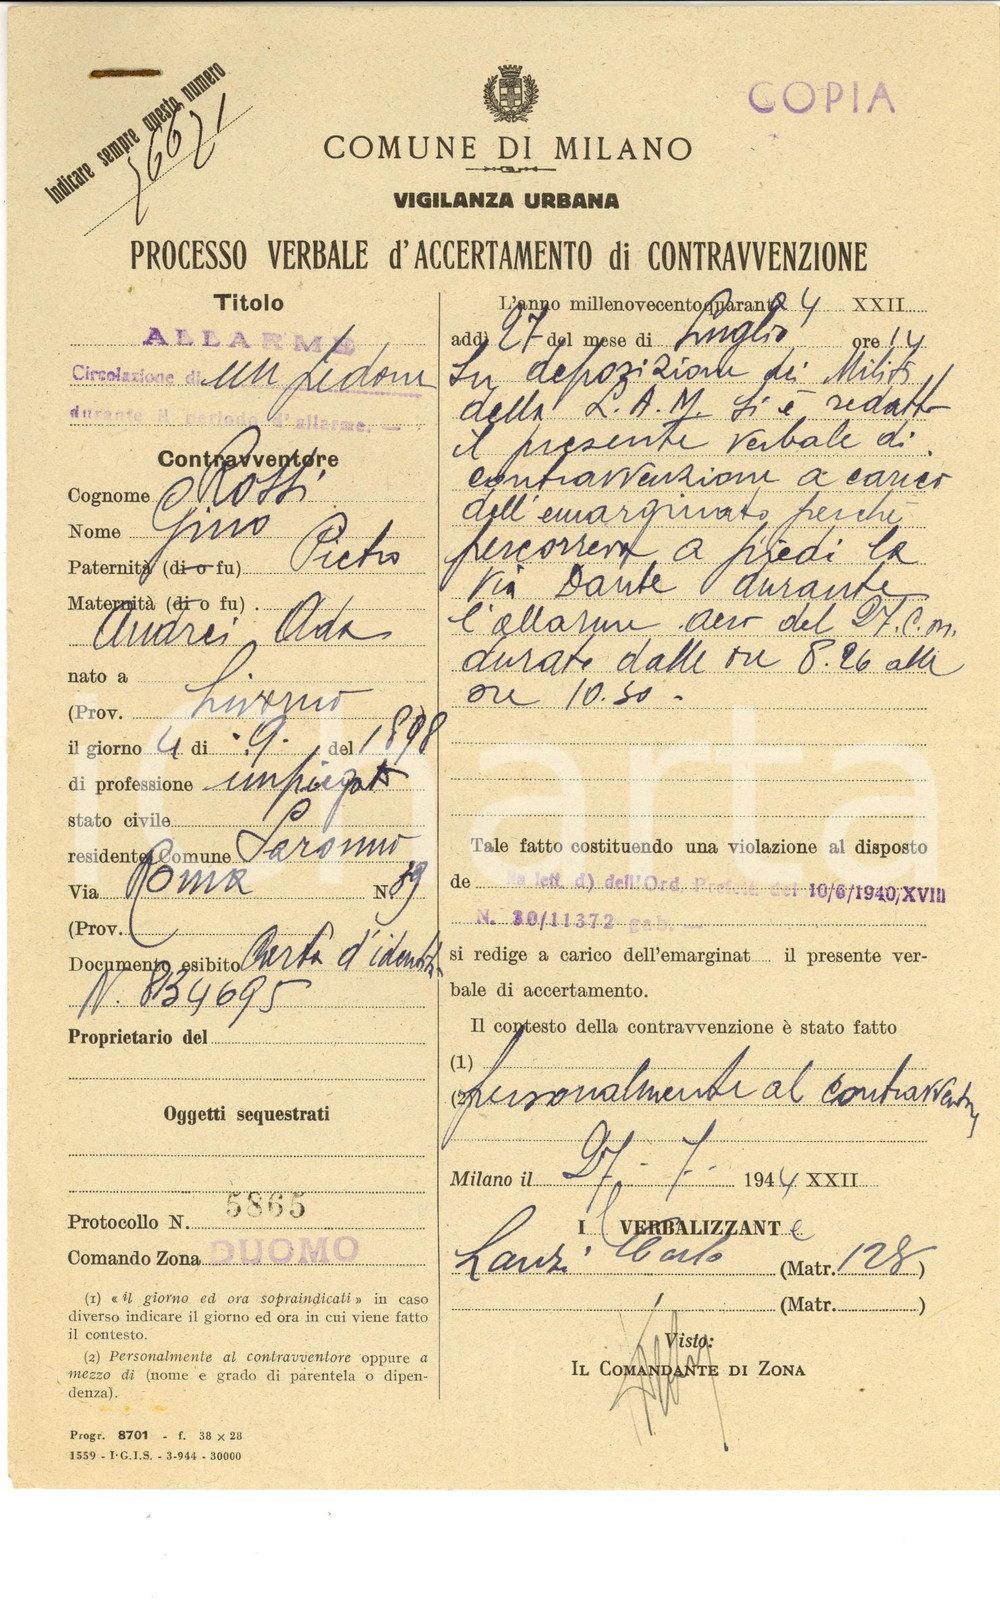 Indicare sempre questo numero
COPIA
COMUNE DI MILANO
VIGILANZA URBANA
PROCESSO VERBALE d'ACCERTAMENTO di CONTRAVVENZIONE
Titolo
ALLARME
Circolazione di un pedone
durante il periodo d'allarme. —
Contravventore
Cognome Rossi
Nome Gino
Paternità (di o fu) Pietro
Maternità (di o fu)
Andrei Ada
nato a
(Prov. Livorno
il giorno 4 di 9. del 1898
di professione impiegato
stato civile
residente Comune Saronno
Via Roma N. 89
(Prov.
Documento esibito Carta d'identità
N. 834695
Proprietario del
Oggetti sequestrati
Protocollo N. 5865
Comando Zona DUOMO
(1) « il giorno ed ora sopraindicati » in caso
diverso indicare il giorno ed ora in cui viene fatto
il contesto.
(2) Personalmente al contravventore oppure a
mezzo di (nome e grado di parentela o dipen-
denza).
Progr. 8701 - f. 38 × 28
1559 - I·G.I.S. - 3-944 - 30000
L'anno millenovecentoquaranta 4 XXII
addì 27 del mese di Luglio ore 14
Su deposizione dei Militi
della S.A.M. si è redatto
il presente verbale di
contravvenzione a carico
dell'emarginato perchè
percorreva a piedi la
via Dante durante
l'allarme aereo del 27. c.m.
durato dalle ore 8.26 alle
ore 10.30 -
Tale fatto costituendo una violazione al disposto
de lla lett. d) dell'Ord. Prefett. del 10/6/1940/XVIII
N. 30/11372 gab. —
si redige a carico dell'emarginat il presente ver-
bale di accertamento.
Il contesto della contravvenzione è stato fatto
(1)
(2) personalmente al contravventore
Milano il 27 - 7 - 1944 XXII
Il VERBALIZZANTE
Lanzi Carlo (Matr. 128)
(Matr. )
Visto:
IL COMANDANTE DI ZONA
charta